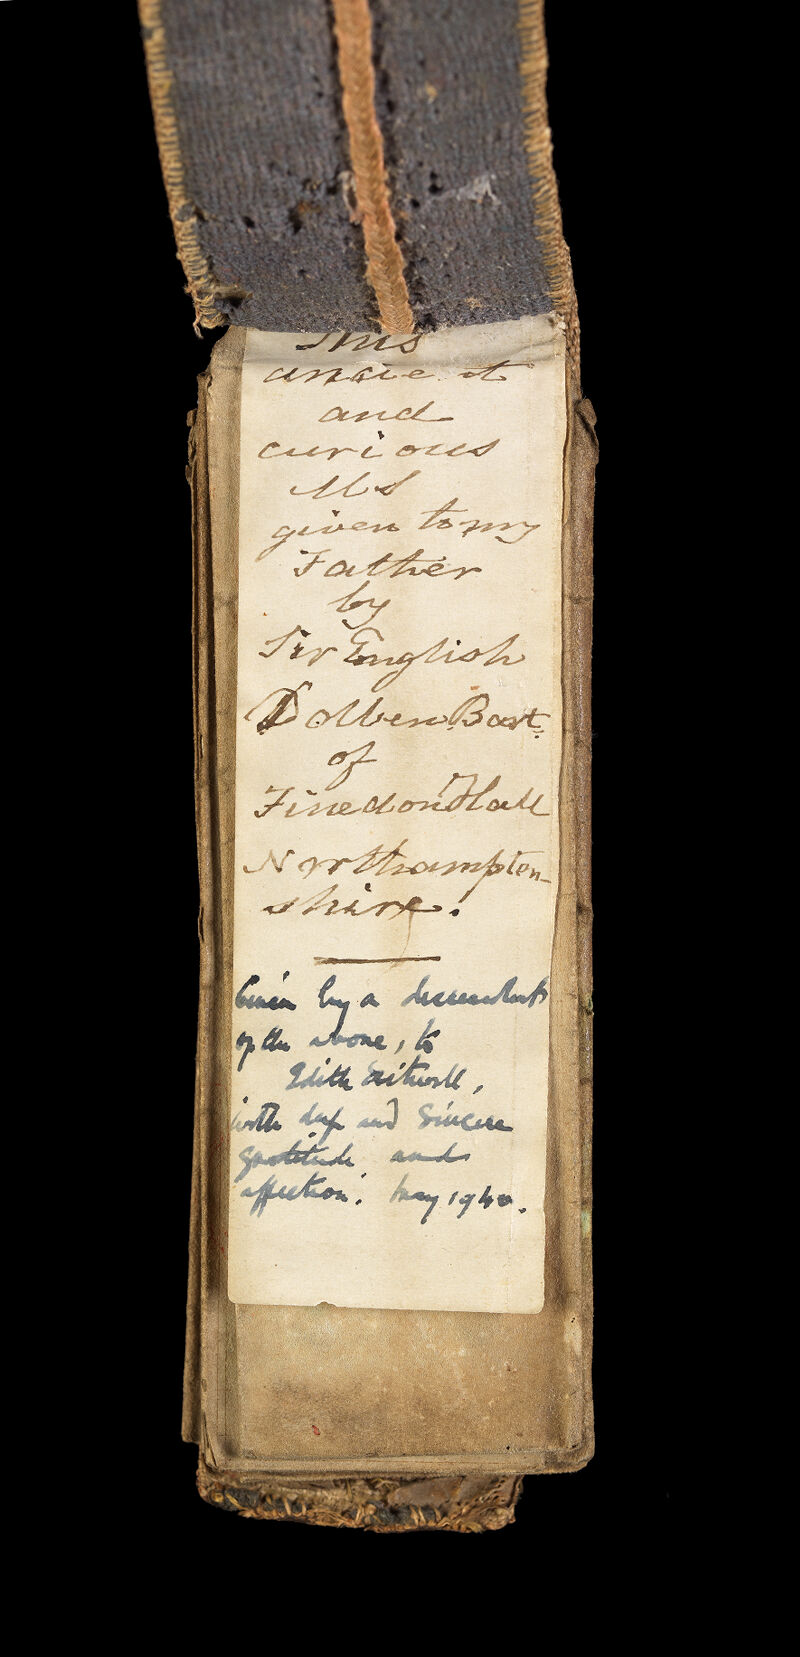 This
ancient
and
curious
MS
given to my
Father
by
Sir English
Dolben Bart.
of
Finedon Hall
Northampton-
shire.
Given by a descendant
of the above, to
Edith Sitwell,
with deep and sincere
gratitude and
affection. May 1940.